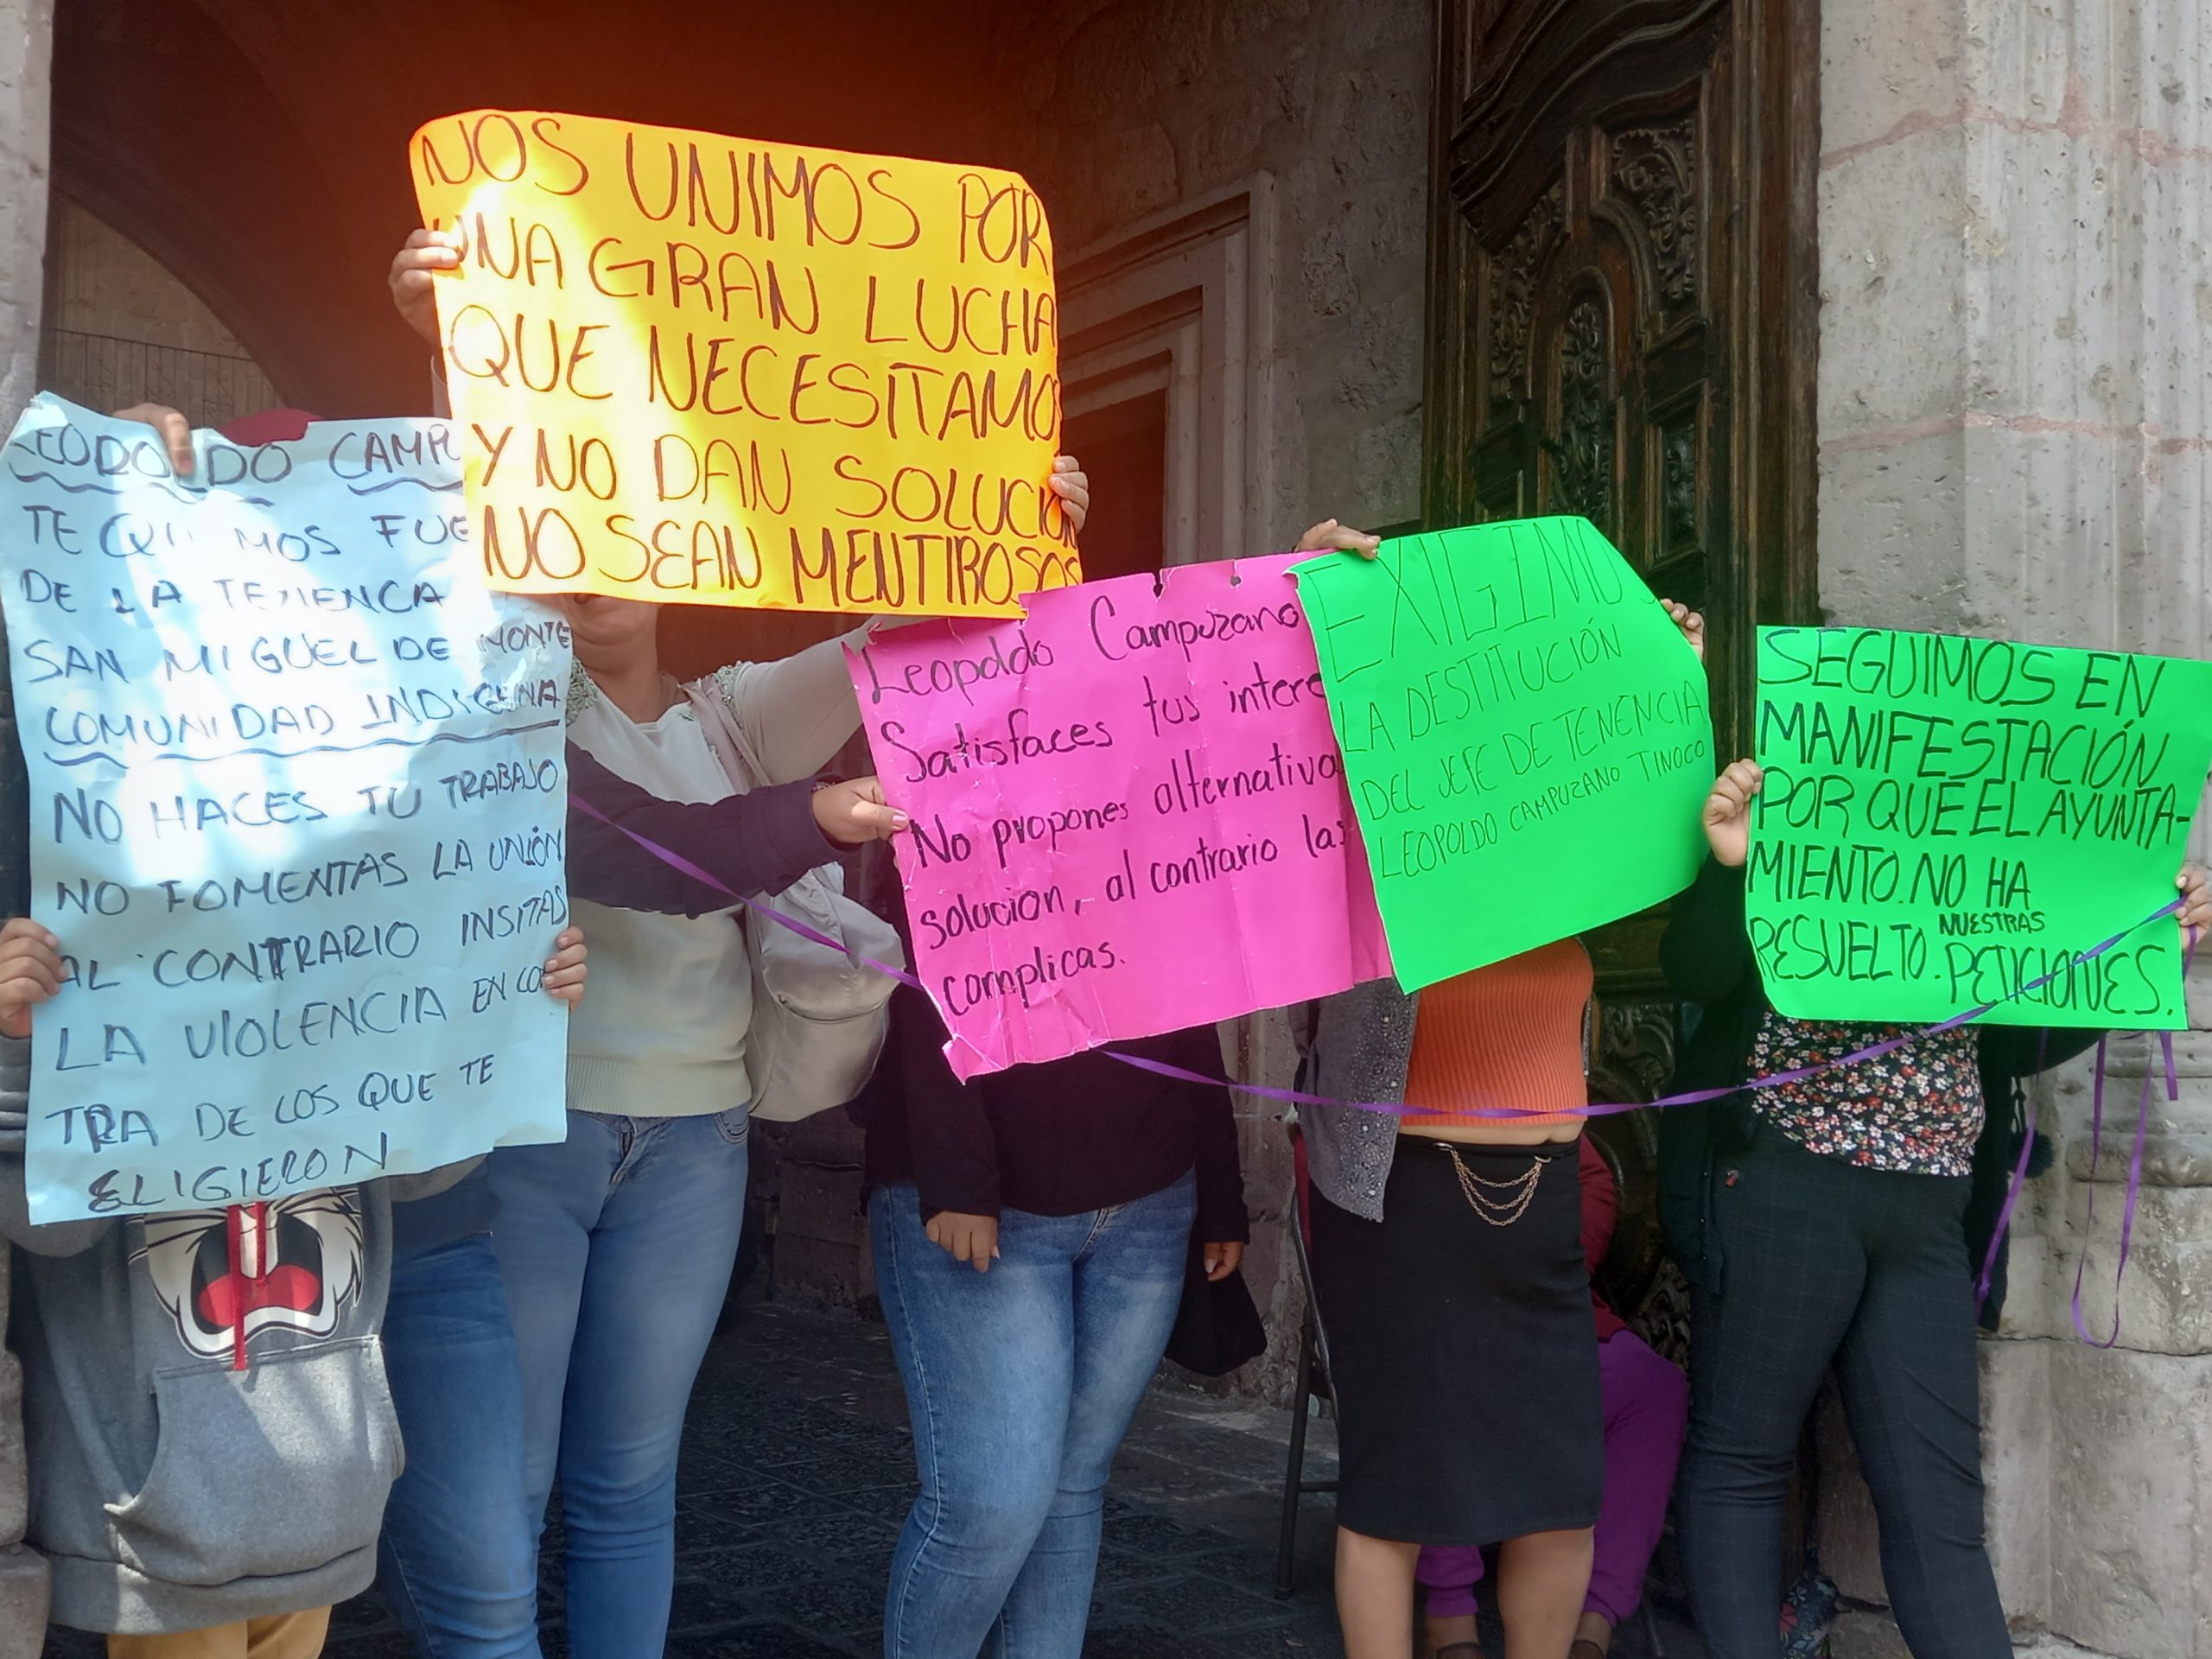 DO CAMP
TE MOS FUE
DE LA TENENCA
SAN MIGUEL DE MONTE
COMUNIDAD INDIGENA
NO HACES TU TRABAJO
NO FOMENTAS LA UNIÓN
AL CONTRARIO INSITAS
LA VIOLENCIA EN CON
TRA DE LOS QUE TE
ELIGIERON
NOS UNIMOS POR
UNA GRAN LUCHA
QUE NECESITAMOS
Y NO DAN SOLUCION
NO SEAN MENTIROSOS
Leopoldo Campuzano
Satisfaces tus intere
No propones alternativa
solucion, al contrario las
complicas.
EXIGIMOS
LA DESTITUCIÓN
DEL JEFE DE TENENCIA
LEOPOLDO CAMPUZANO TINOCO
SEGUIMOS EN
MANIFESTACIÓN
POR QUE EL AYUNTA-
MIENTO. NO HA
RESUELTO. NUESTRAS
PETICIONES.